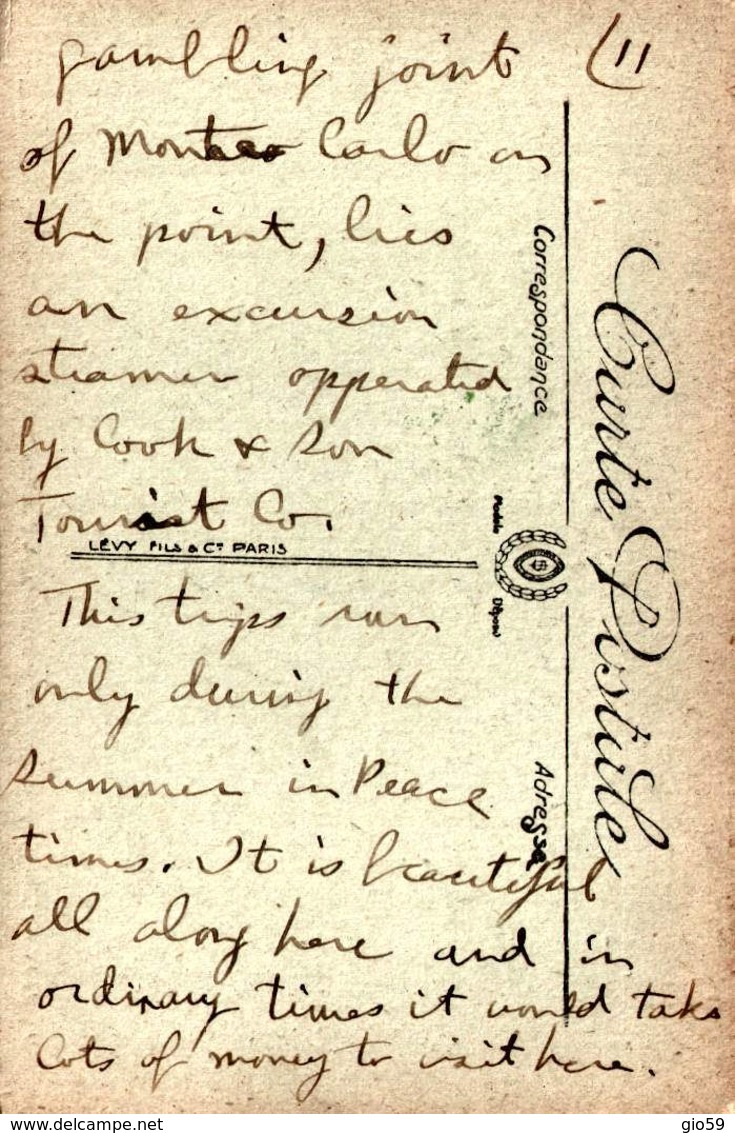 (11
gambling joint
of Monte Carlo on
the point, lies
an excursion
steamer opperated
by Cook & Son
Tourist Co.
LÉVY FILS & Cie PARIS
This trips run
only during the
summer in Peace
times. It is beautiful
all along here and in
ordinary times it would take
lots of money to visit here.
Carte Postale
Correspondance
Modèle
Déposé
Adresse
www.delcampe.net
gio59